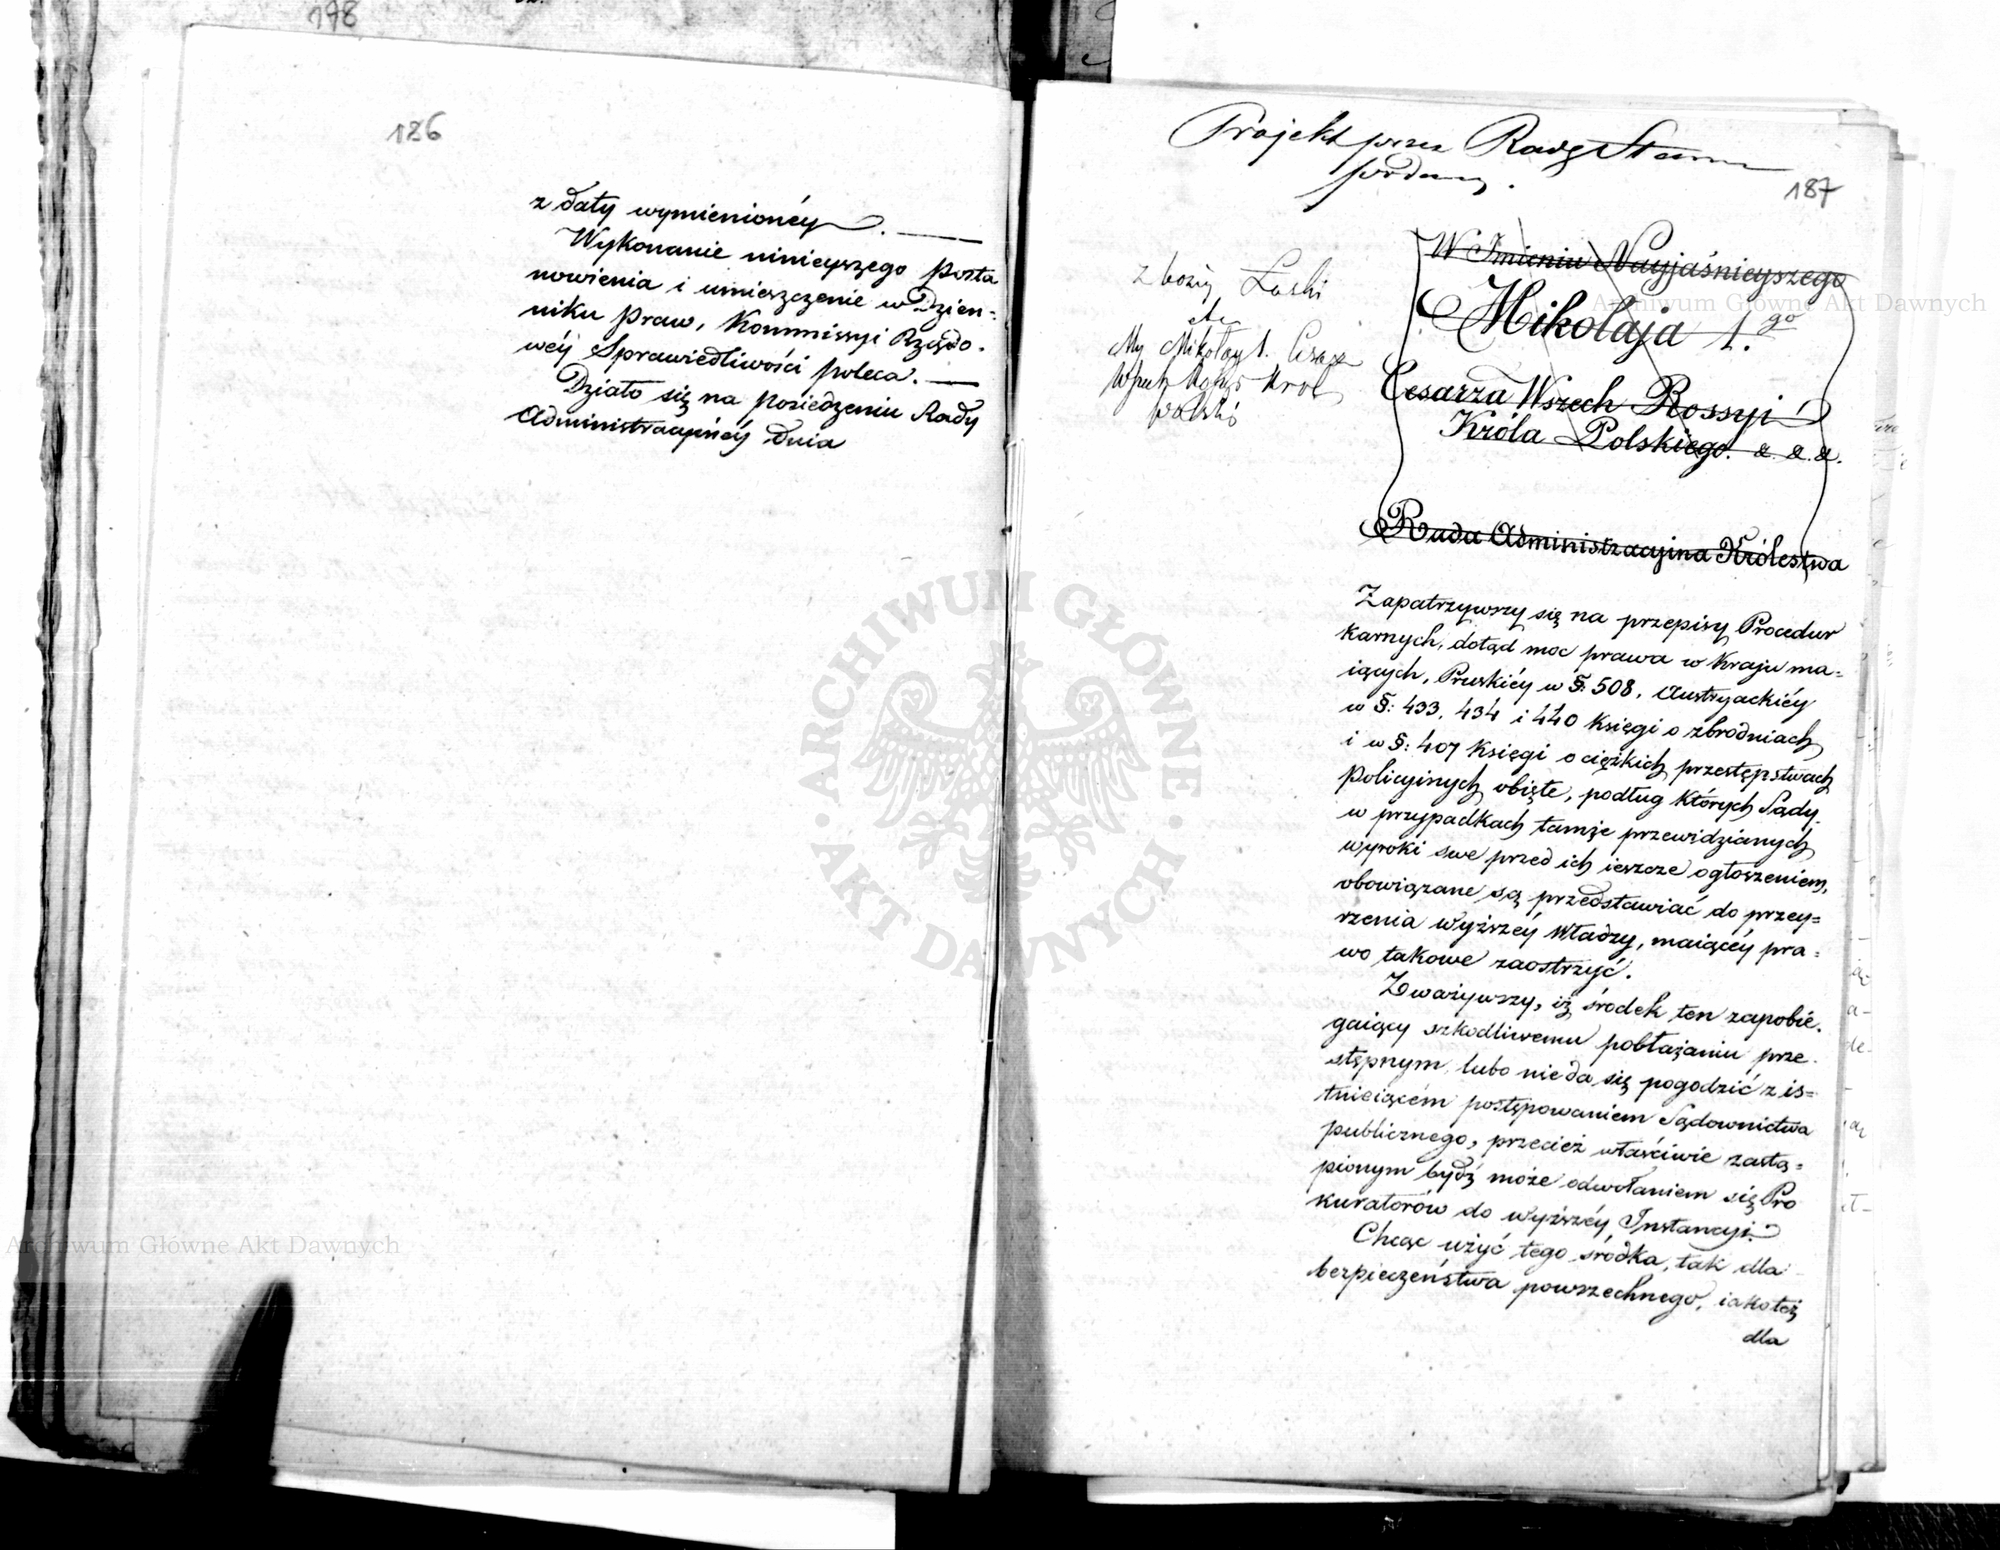 178
186
z daty wymienionéy.
Wykonanie ninieyszego posta
nowienia i umieszczenie w Dzien=
niku Praw, Kommissyi Rządo-
wéy Sprawiedliwości poleca.
Działo się na posiedzeniu Rady
Administracyinéy dnia
Projekt przez Radę Stanu
podany.
187
W Imieniu Nayjaśnieyszego
Mikołaja 1.go
Cesarza Wszech Rossyi
Króla Polskiego. &. &. &.
z boży Łaski
etc
My Mikołay 1. Cesarz
Król
Polski
Rada Administracyjna Królestwa
Zapatrzywszy się na przepisy Procedur
karnych, dotąd moc prawa w kraju ma=
iących, Pruskiéy w §. 508, Austryackiéy
w §: 433, 434 i 440 księgi o zbrodniach
i w §: 407 księgi o ciężkich przestępstwach
Policyinych obięte, podług których Sądy
w przypadkach tamże przewidzianych
wyroki swe przed ich ieszcze ogłoszeniem,
obowiązane są przedstawiać do przey=
rzenia wyższéy władzy, maiącéy pra=
wo takowe zaostrzyć.
Zważywszy, iż środek ten zapobie-
gaiący szkodliwemu pobłażaniu prze-
stępnym, lubo nie da się pogodzić z is=
tnieiącém postępowaniem Sądownictwa
publicznego, przecież właściwie zastą=
pionym bydź może odwołaniem się Pro
kuratorów do wyższéy Instancyi.
Chcąc użyć tego środka, tak dla
bezpieczeństwa powszechnego, iako też
dla
ARCHIWUM GŁÓWNE AKT DAWNYCH
Archiwum Główne Akt Dawnych
Archiwum Główne Akt Dawnych